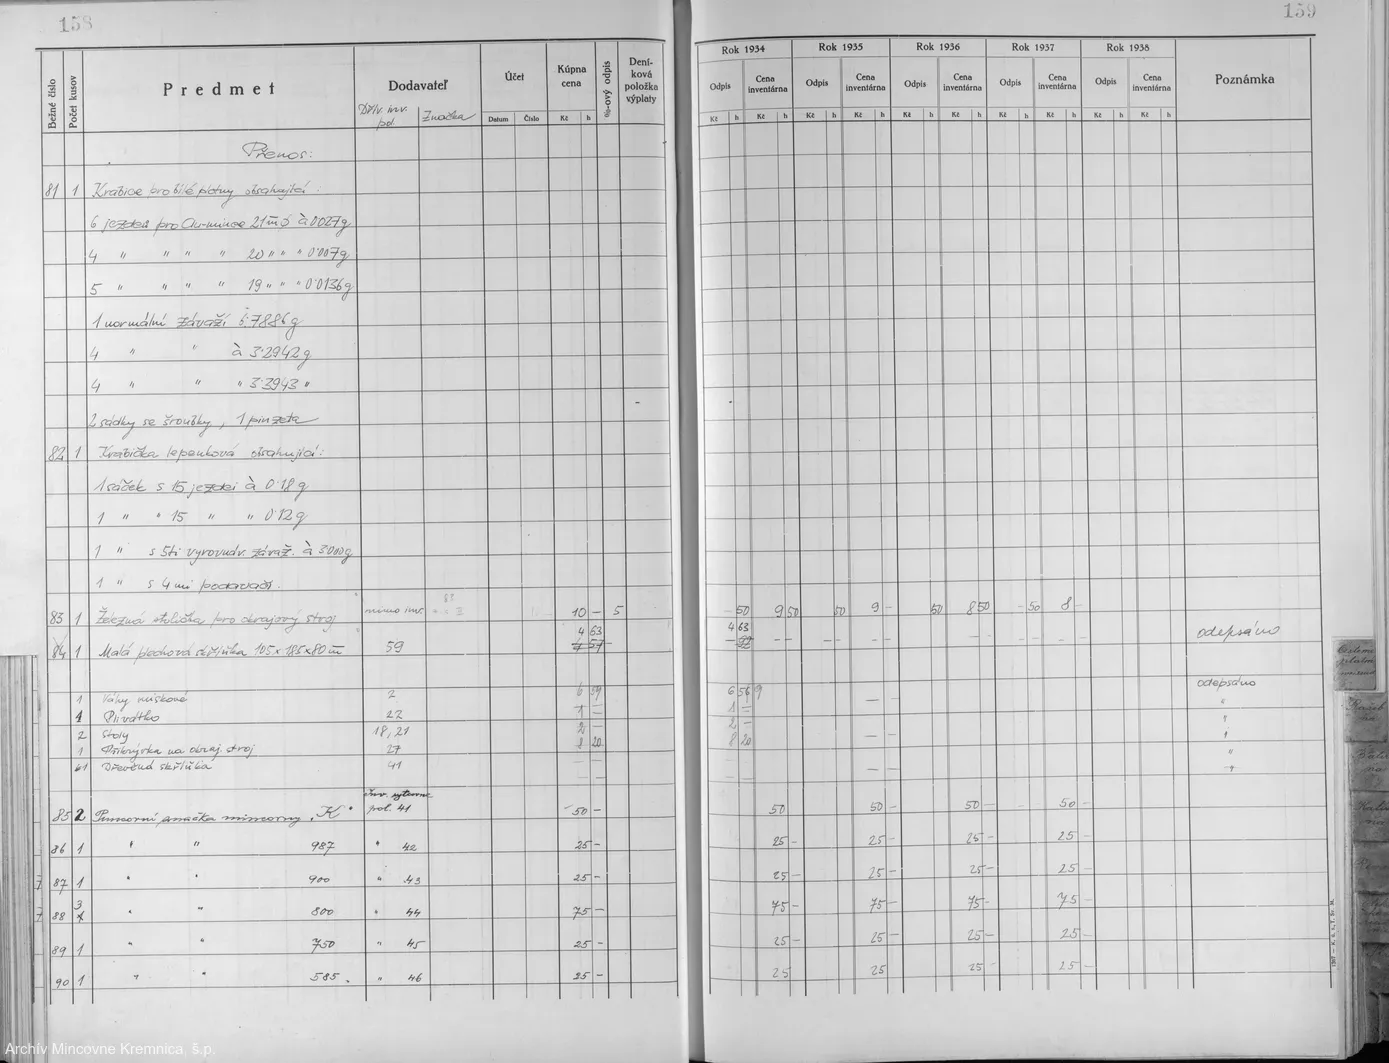 158
159
Bežné číslo | Počet kusov | Predmet | Dodavateľ | Účet | Kúpna cena | %-ový odpis | Deníková položka výplaty | Rok 1934 | Rok 1935 | Rok 1936 | Rok 1937 | Rok 1938 | Poznámka
Značka | Datum | Číslo | Kč | h | Odpis | Cena inventárna | Odpis | Cena inventárna | Odpis | Cena inventárna | Odpis | Cena inventárna | Odpis | Cena inventárna
Kč | h | Kč | h | Kč | h | Kč | h | Kč | h | Kč | h | Kč | h | Kč | h | Kč | h | Kč | h
Přenos:
81 1 Krabice pro bílé plotny obsahující:
6 jezdců pro Au-mince 21 m̄ ⌀ à 0.027g
4 " " " " 20 " " " 0.007g
5 " " " " 19 " " " 0.0136g
1 normální závaží 6.7886g
4 " " à 3.2942g
4 " " " 3.3943 "
2 sádky se šroubky, 1 pinzeta
82 1 Krabička lepenková obsahující:
1 sáček s 15 jezdci à 0.18g
1 " " 15 " " 0.12g
1 " s 5ti vyrovnáv. závaž. à 3000g
1 " s 4mi podavači.
83 1 Železná stolička pro obrajový stroj mimo inv. 10 — 5 — 50 9 50 50 9 — 50 8 50 — 50 8 —
4 63 4 63
84 1 Malá plechová skříňka 105×185×80 m̄ 59 4 57 odepsáno
1 Váhy miskové 2 6 59 6 56 9 odepsáno
1 Plivátko 22 1 — 1 — "
2 Stoly 18,21 2 — 2 — "
1 27 8 20 8 20 "
1 Dřevěná skříňka 41 — — "
85 2 Puncovní značka mincovny "K" pol. 41 50 — 50 50 — 50 — 50 —
86 1 " " 987 " 42 25 — 25 — 25 — 25 — 25 —
87 1 " " 900 " 43 25 — 25 25 — 25 — 25 —
88 3 " " 800 " 44 75 — 75 — 75 — 75 — 75 —
89 1 " " 750 " 45 25 — 25 — 25 — 25 — 25 —
90 1 " " 585. " 46 25 — 25 25 25 — 25 —
Archív Mincovne Kremnica, š.p.